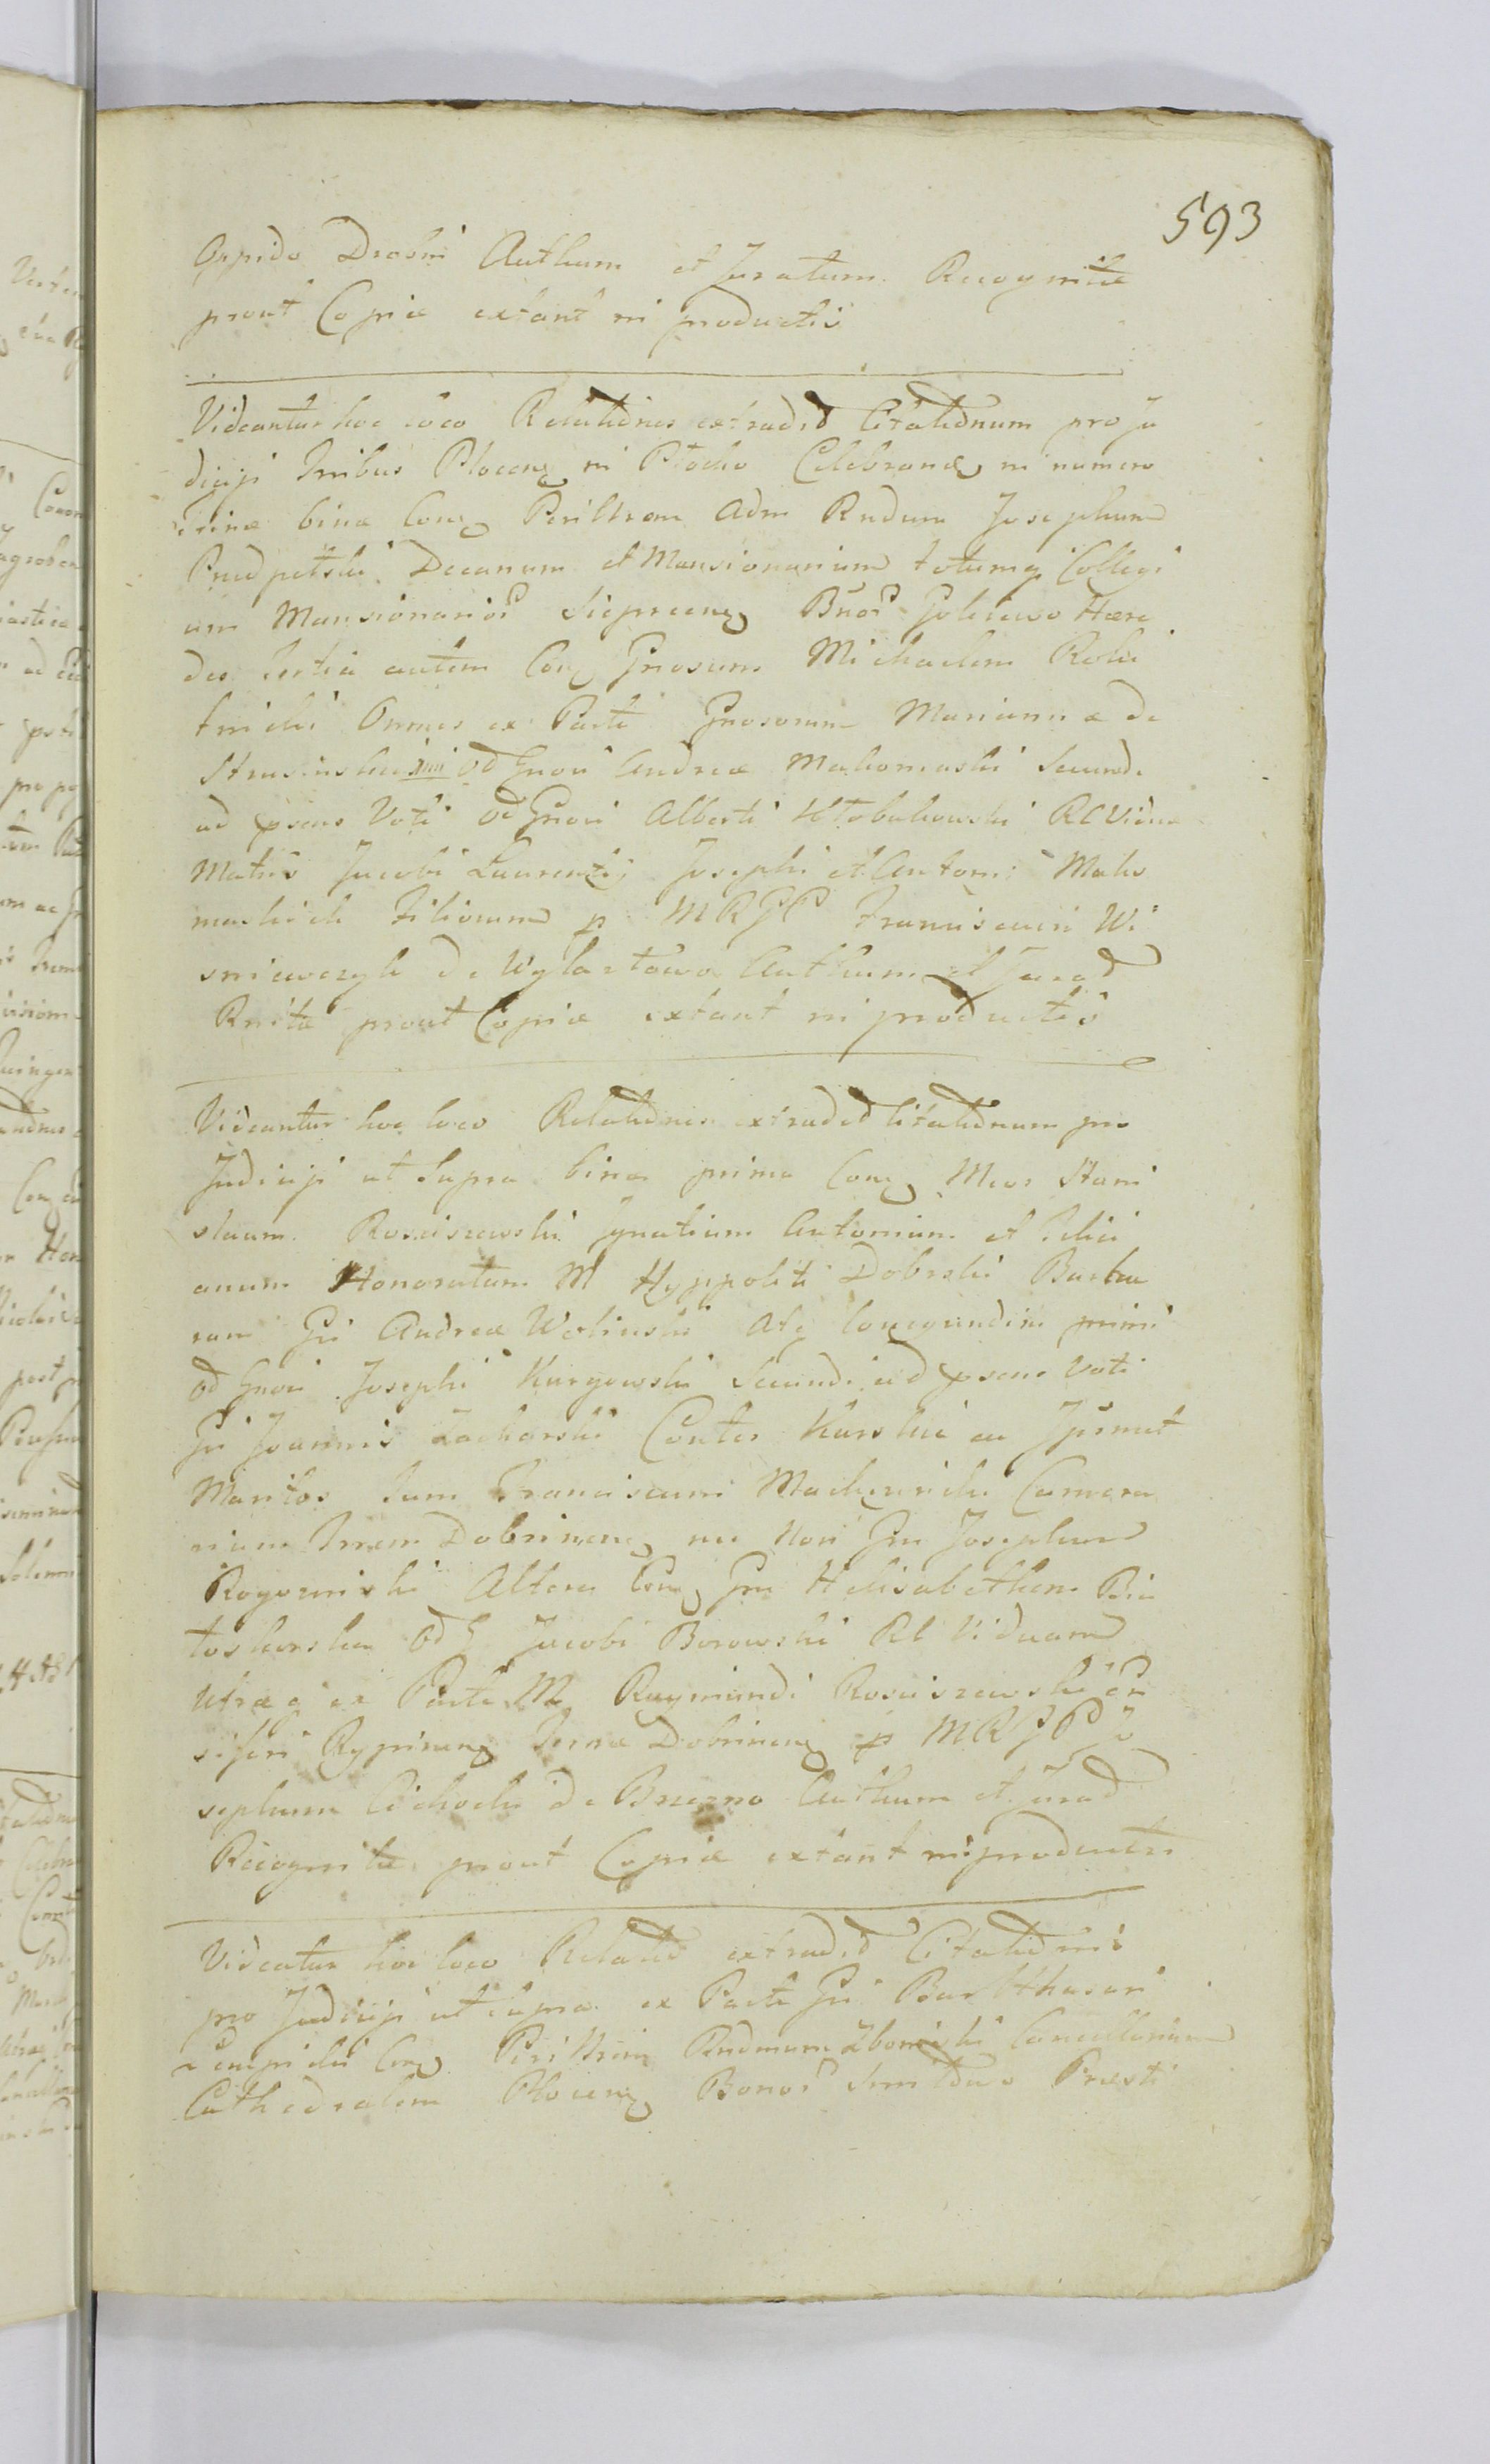 593
Oppido Drobni Authum et Juratum Recognitæ
prout Copiæ extant in productis
Videantur hoc loco Relationes extradit Citationum pro Ju
dicijs Trribus Plocen in Płocko Celebrand in numero
Trinæ binæ Con Perillrem Adm Rndum Josephum
Decanum et Mansionarium totumq Collegi
um Mansionarior Sieprcen Bnor Golejewo Hære
des tertia autem Con Gnosum Michaelem Roki
tnicki Omnes ex Parte Gnosorum Mariannæ de
Strusinskie imi od Gnori Andreæ Makomaski Secundi
ad psens Voti od Gnori Alberti Kłobukowski RC Viduæ
Matris Jacobi Laurentij Josephi et Antoni Mako
maskich Filiorum p MRGP Franciscum Wi
sniewczyk de Authum et Jurad
Rnitæ prout Copiæ extant in productis
Videantur hoc loco Relationes extradit Citationum pro
Judicijs ut Supra binæ prima Con Mcos Stani
slaum Rosciszewski Ignatium Antonium et Felici
anum Honoratam M Hyppoliti Dobrski Barba
ram Gsi Andreæ Wolinski Atq Conegundim primi
od Gnori Josephi Kurgowski Secundi ad psens Voti
Gsi Joannis Zachorski Contes Kurskie ac Ipsmet
Maritos tum Franciscum Camera
rium Trrem Dobrinen nec Non Gsu Josephum
Rogozinski Altera Con Gsu Helisabetham Bia
toskorska od G Jacobi Borowski RC Viduam
Utræq ex Parte M Raymundi Rosciszewski En
siferi Rypinen Terræ Dobrinen p MRGP Jo
sephum Cichocki de Brzezno Authum et Jurad
Recognitæ prout Copiæ extant in productis
Videatur hoc loco Relatio extradit Citationis
pro Judicijs ut Supra ex Parte Gsi Balthasari
Con Perillrem Rndmum Zboinski Cancellarium
Cathedralem Plocen Bonor Præsti